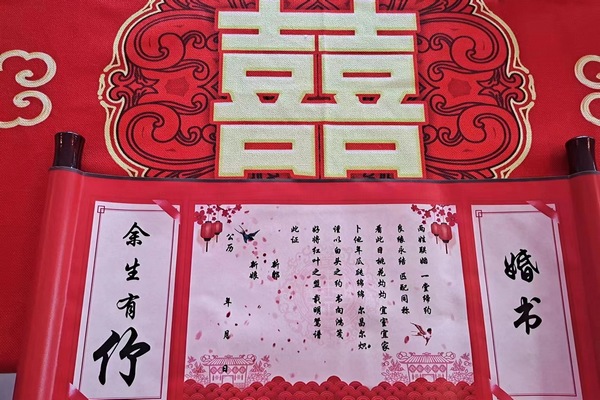 囍
婚书
两姓联姻 一堂缔约
良缘永结 匹配同称
看此日桃花灼灼 宜室宜家
卜他年瓜瓞绵绵 尔昌尔炽
谨以白头之约 书向鸿笺
好将红叶之盟 载明鸳谱
此证
新郎
新娘
公历 年 月 日
余生有你